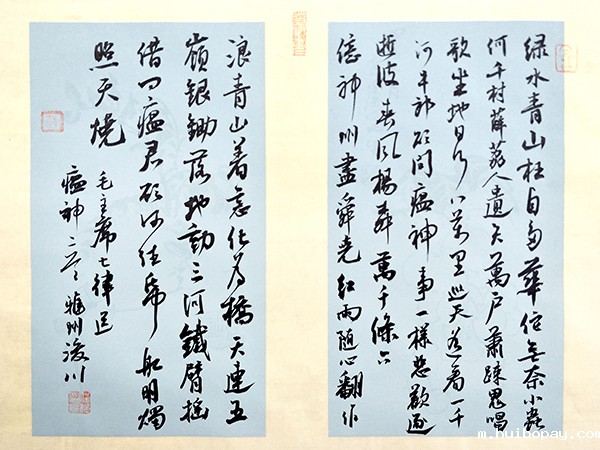 绿水青山枉自多華佗無奈小蟲
何千村薜荔人遺矢萬戶蕭疎鬼唱
歌坐地日行八萬里巡天遙看一千
河牛郎欲問瘟神事一樣悲歡逐
逝波春风楊柳萬千條六
億神州盡舜堯紅雨随心翻作
浪青山着意化为橋天連五
嶺銀鋤落地動三河鐵臂摇
借问瘟君欲何往纸船明燭
照天燒
毛主席七律送
瘟神二首 州 川
m.huibopay.com